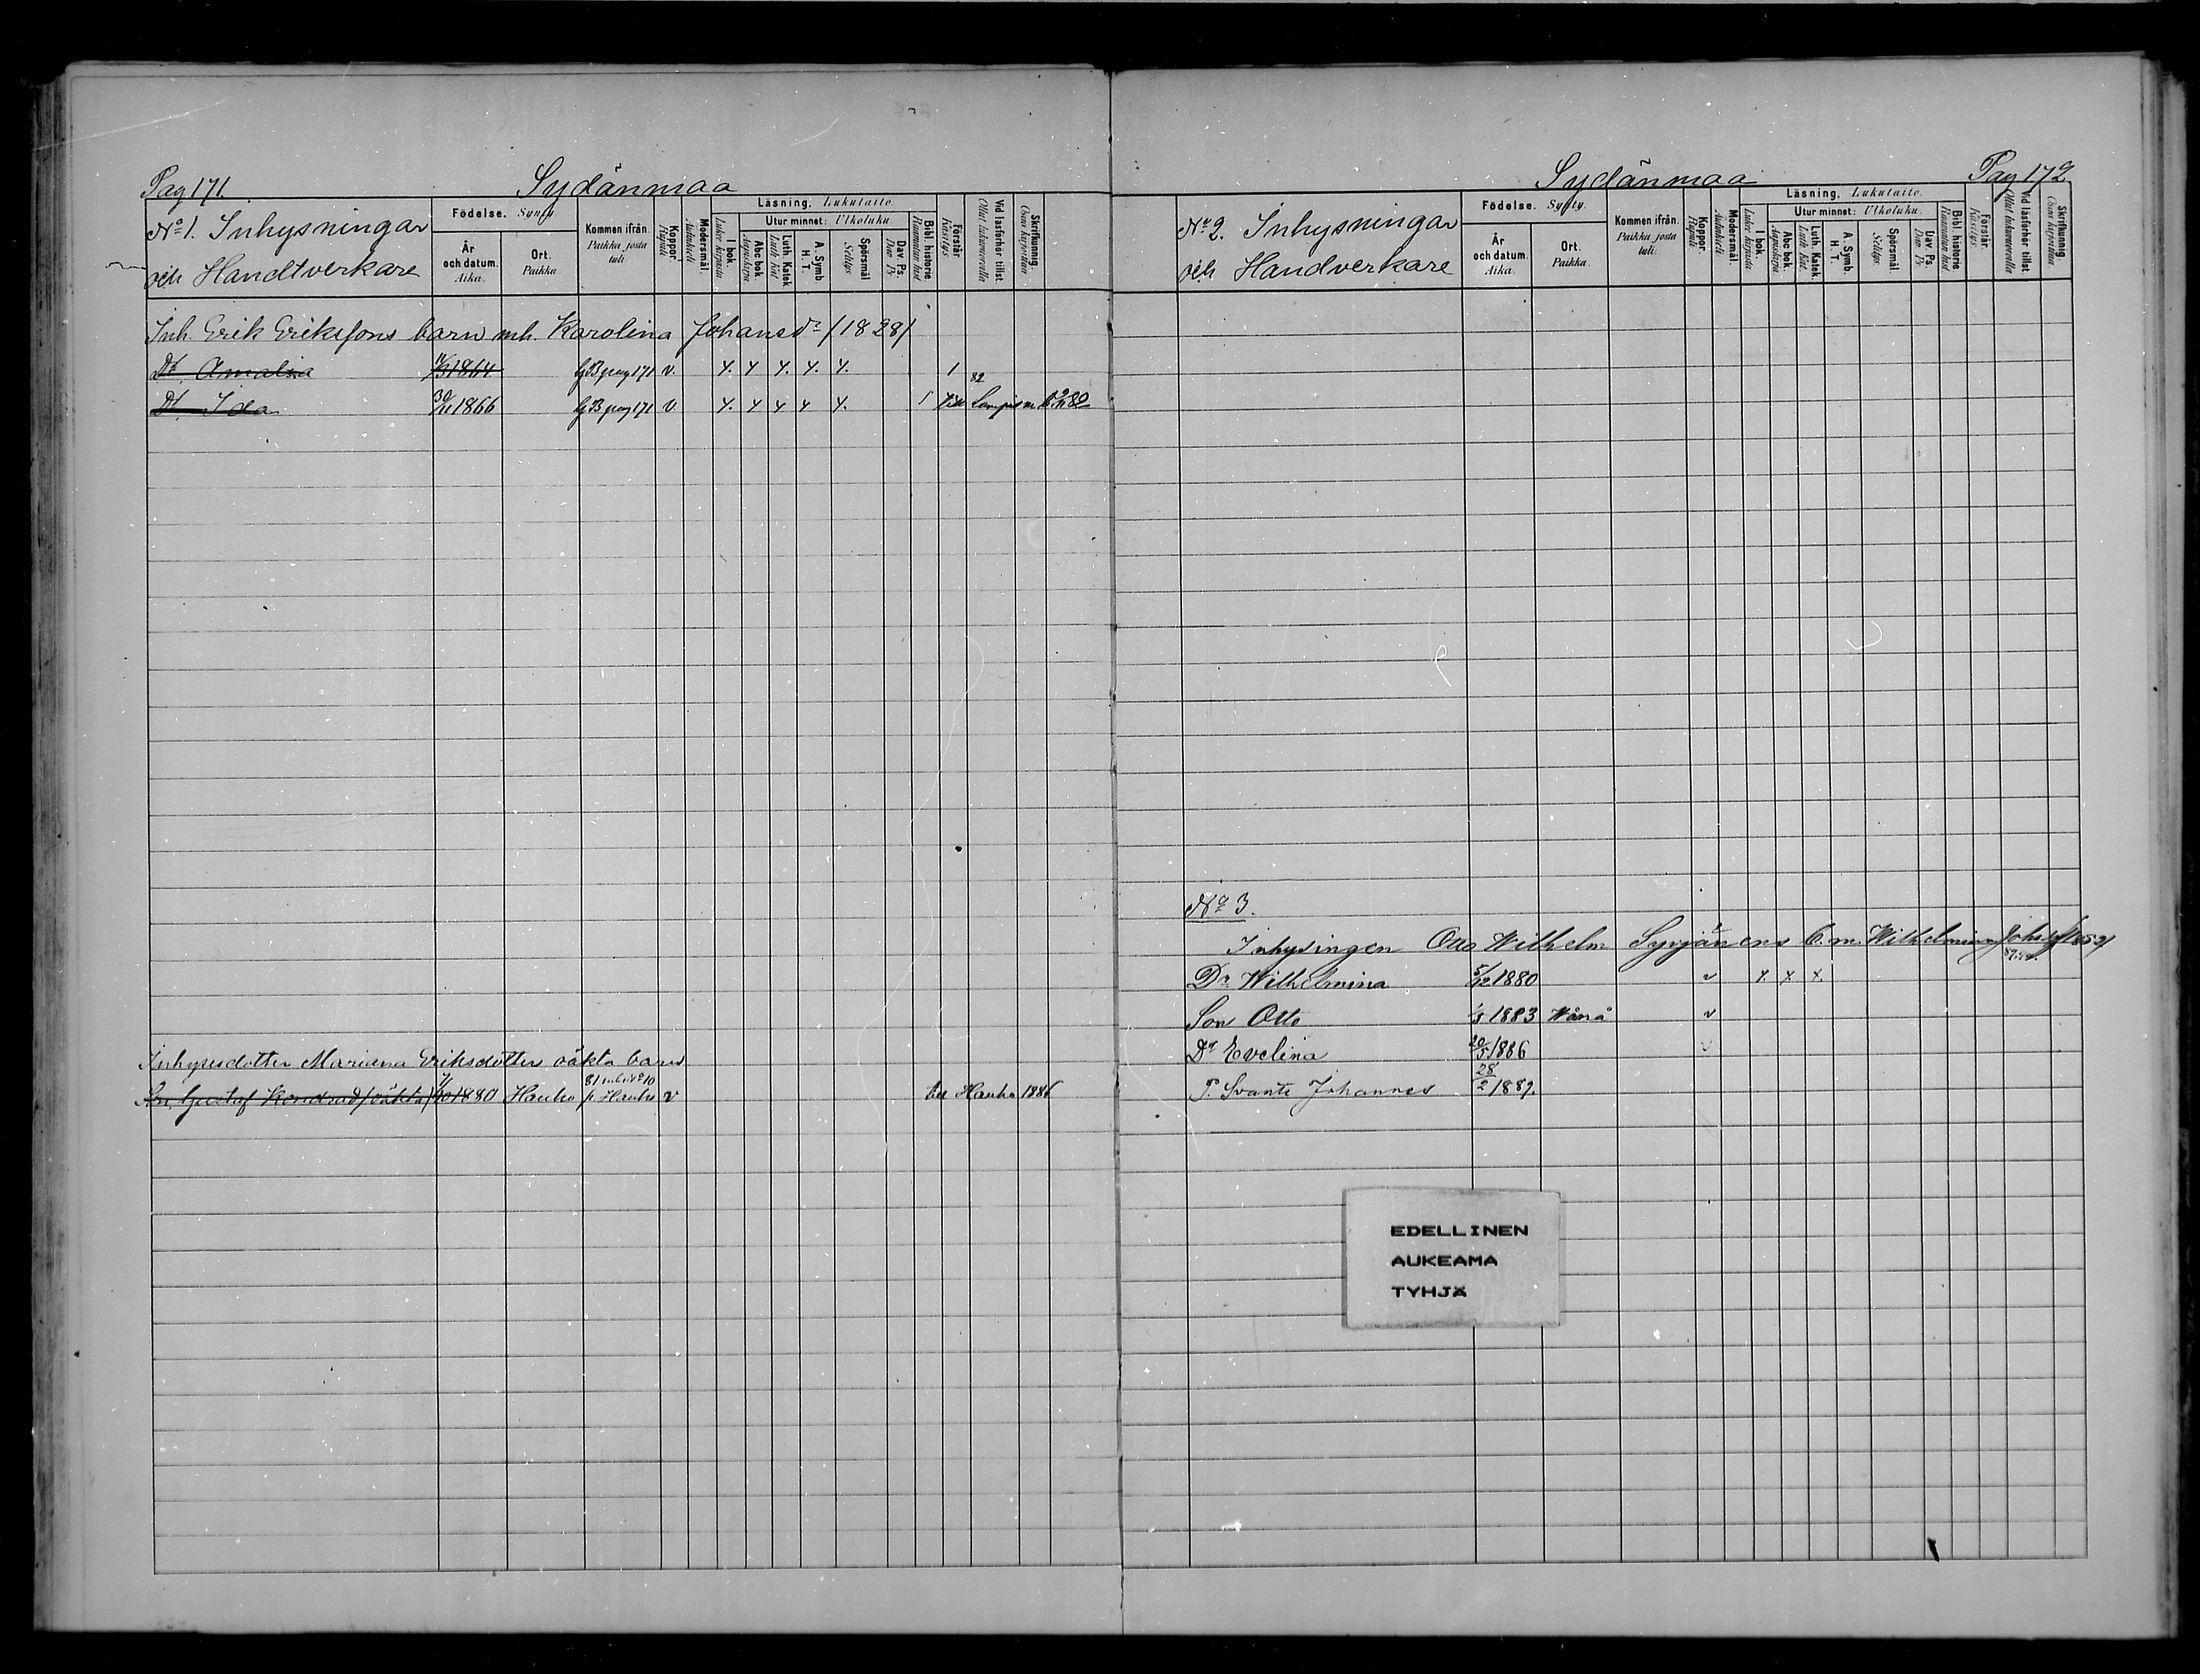 Pag 171. Sydänmaa
No 1. Inhysningar
och Handtverkare
Födelse. Synty.
År och datum. Aika.
Ort. Paikka
Kommen ifrån. Paikka josta tuli.
Koppor. Rupuli
Modersmål. Äidinkieli
Läsning. Lukutaito.
I bok. Lukee kirjasta
Utur minnet: Ulkoluku.
Abc bok. Aapiskirja
Luth. Katek Luth Kat.
A. Symb. H. T.
Spörsmål Selitys.
Dav. Ps. Dav. Ps
Bibl. historie. Raamatun hist
Förstår Käsitys.
Vid läsförhör tillst. Ollut lukuvuorolla
Skrifkunnig Osaa kirjoittaa
Inh. Erik Erikssons barn m.h. Karolina Johansdr /1828/
Dr Amalia 1864 pag 171 v. x. x x. x. x. 1
82
Dr Ida 30/11 1866 pag 171 v x. x x x x. 1
Inhysesdotter Mariana Eriksdotter oäkta barn
Son, Gustaf Kondrad /oäkta/ 1880 Hauho fr Hauho v till Hauho 1886
Sydänmaa Pag 172
No 2. Inhysningar
och Handverkare
Födelse. Synty.
År och datum. Aika.
Ort. Paikka.
Kommen ifrån. Paikka josta tuli.
Koppor. Rupuli
Modersmål. Äidinkieli
Läsning. Lukutaito.
I bok. Lukee kirjasta
Utur minnet: Ulkoluku.
Abc bok. Aapiskirja
Luth. Katek. Luth Kat.
A. Symb. H. T.
Spörsmål. Selitys.
Dav. Ps. Dav. Ps
Bibl. historie Raamatun hist
Förstår. Käsitys.
Vid läsförhör tillst. Ollut lukuvuorolla
Skrifkunnig. Osaa kirjoittaa
No 3.
Inhysingen Otto Wilhelm Syrjänens b. m. Wilhelmina
Dr Wilhelmina 5/12 1880 v x x x.
Son Otto 1/5 1883 Wånå v
Dr Evelina 20/5 1886 v
P. Svante Johannes 28/2 1889.
EDELLINEN
AUKEAMA
TYHJÄ